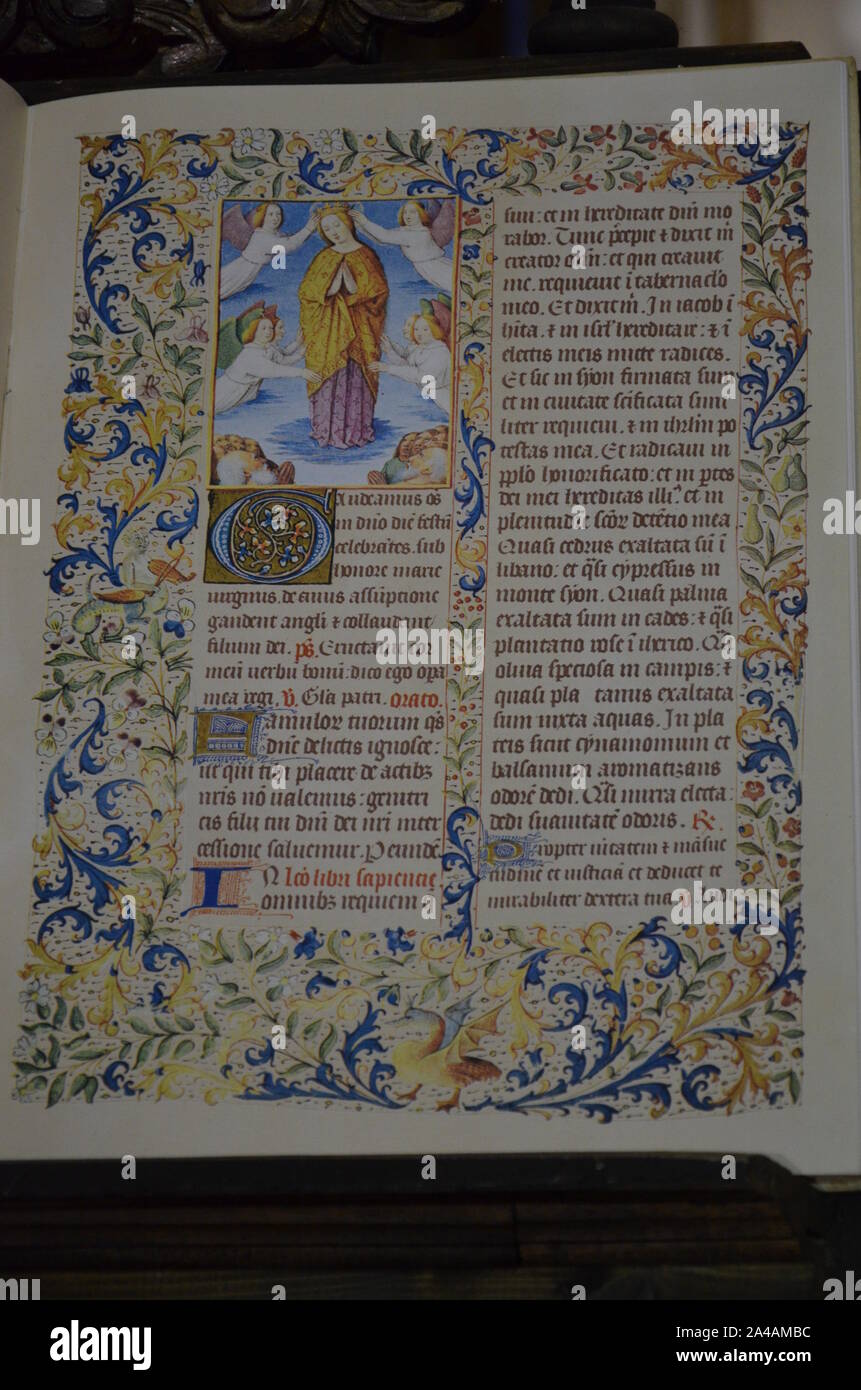 Gaudeamus o͞s
in dn͞o die͞ festu͞
celebra͞tes. sub
honore marie
virginis. de cuius assu͞ptione
gaudent angli ⁊ collaudent
filium dei. ps͞. Eructauit cor
meu͞ uerbu͞ bonu͞: dico ego op͞a
mea regi. ℣. Gl͞a patri. orato.
Famulor tuorum q͞s
dn͞e delictis ignosce:
ut qui tibi placere de actib͛
n͞ris no͞ ualemus: genitri
cis filij tui dn͞i dei n͞ri inter
cessione saluemur. Per eunde͞
In leo͞ libri sapientie
omnib͛ requiem
siui: et in hereditate dn͞i mo
rabor. Tunc p͞cepit ⁊ dixit m͞
creator o͞im: et qui creauit
me. requieuit i͞ tabernac͞lo
meo. Et dixit m͞. In iacob i͞
hi͞ta. ⁊ in isr͞l hereditare: ⁊ i͞
electis meis mitte radices.
Et sic in syon firmata sum
et in ciuitate sc͞ificata simi
liter requieui. ⁊ in ihr͞lm po
testas mea. Et radicaui in
pp͞lo honorificato: et in p͞tes
dei mei hereditas illi᷒. et in
plenitudi͞e sc͞or dete͞tio mea
Quasi cedrus exaltata su͞ i͞
libano: et q͞si cypressus in
monte syon. Quasi palma
exaltata sum in cades: ⁊ q͞si
plantatio rose i͞ iherico. Q͞si
oliua speciosa in campis: ⁊
quasi pla tanus exaltata
sum iuxta aquas. In pla
teis sicut cynamomum et
balsamum aromatizans
odore͞ dedi. Q͞si mirra electa:
dedi suauitate͞ odoris. ℟.
Propter u͞itatem ⁊ ma͞sue
tudine͞ et iusticia͞ et deducet te
mirabiliter dextera tua
alamy
Image ID: 2A4AMBC
www.alamy.com